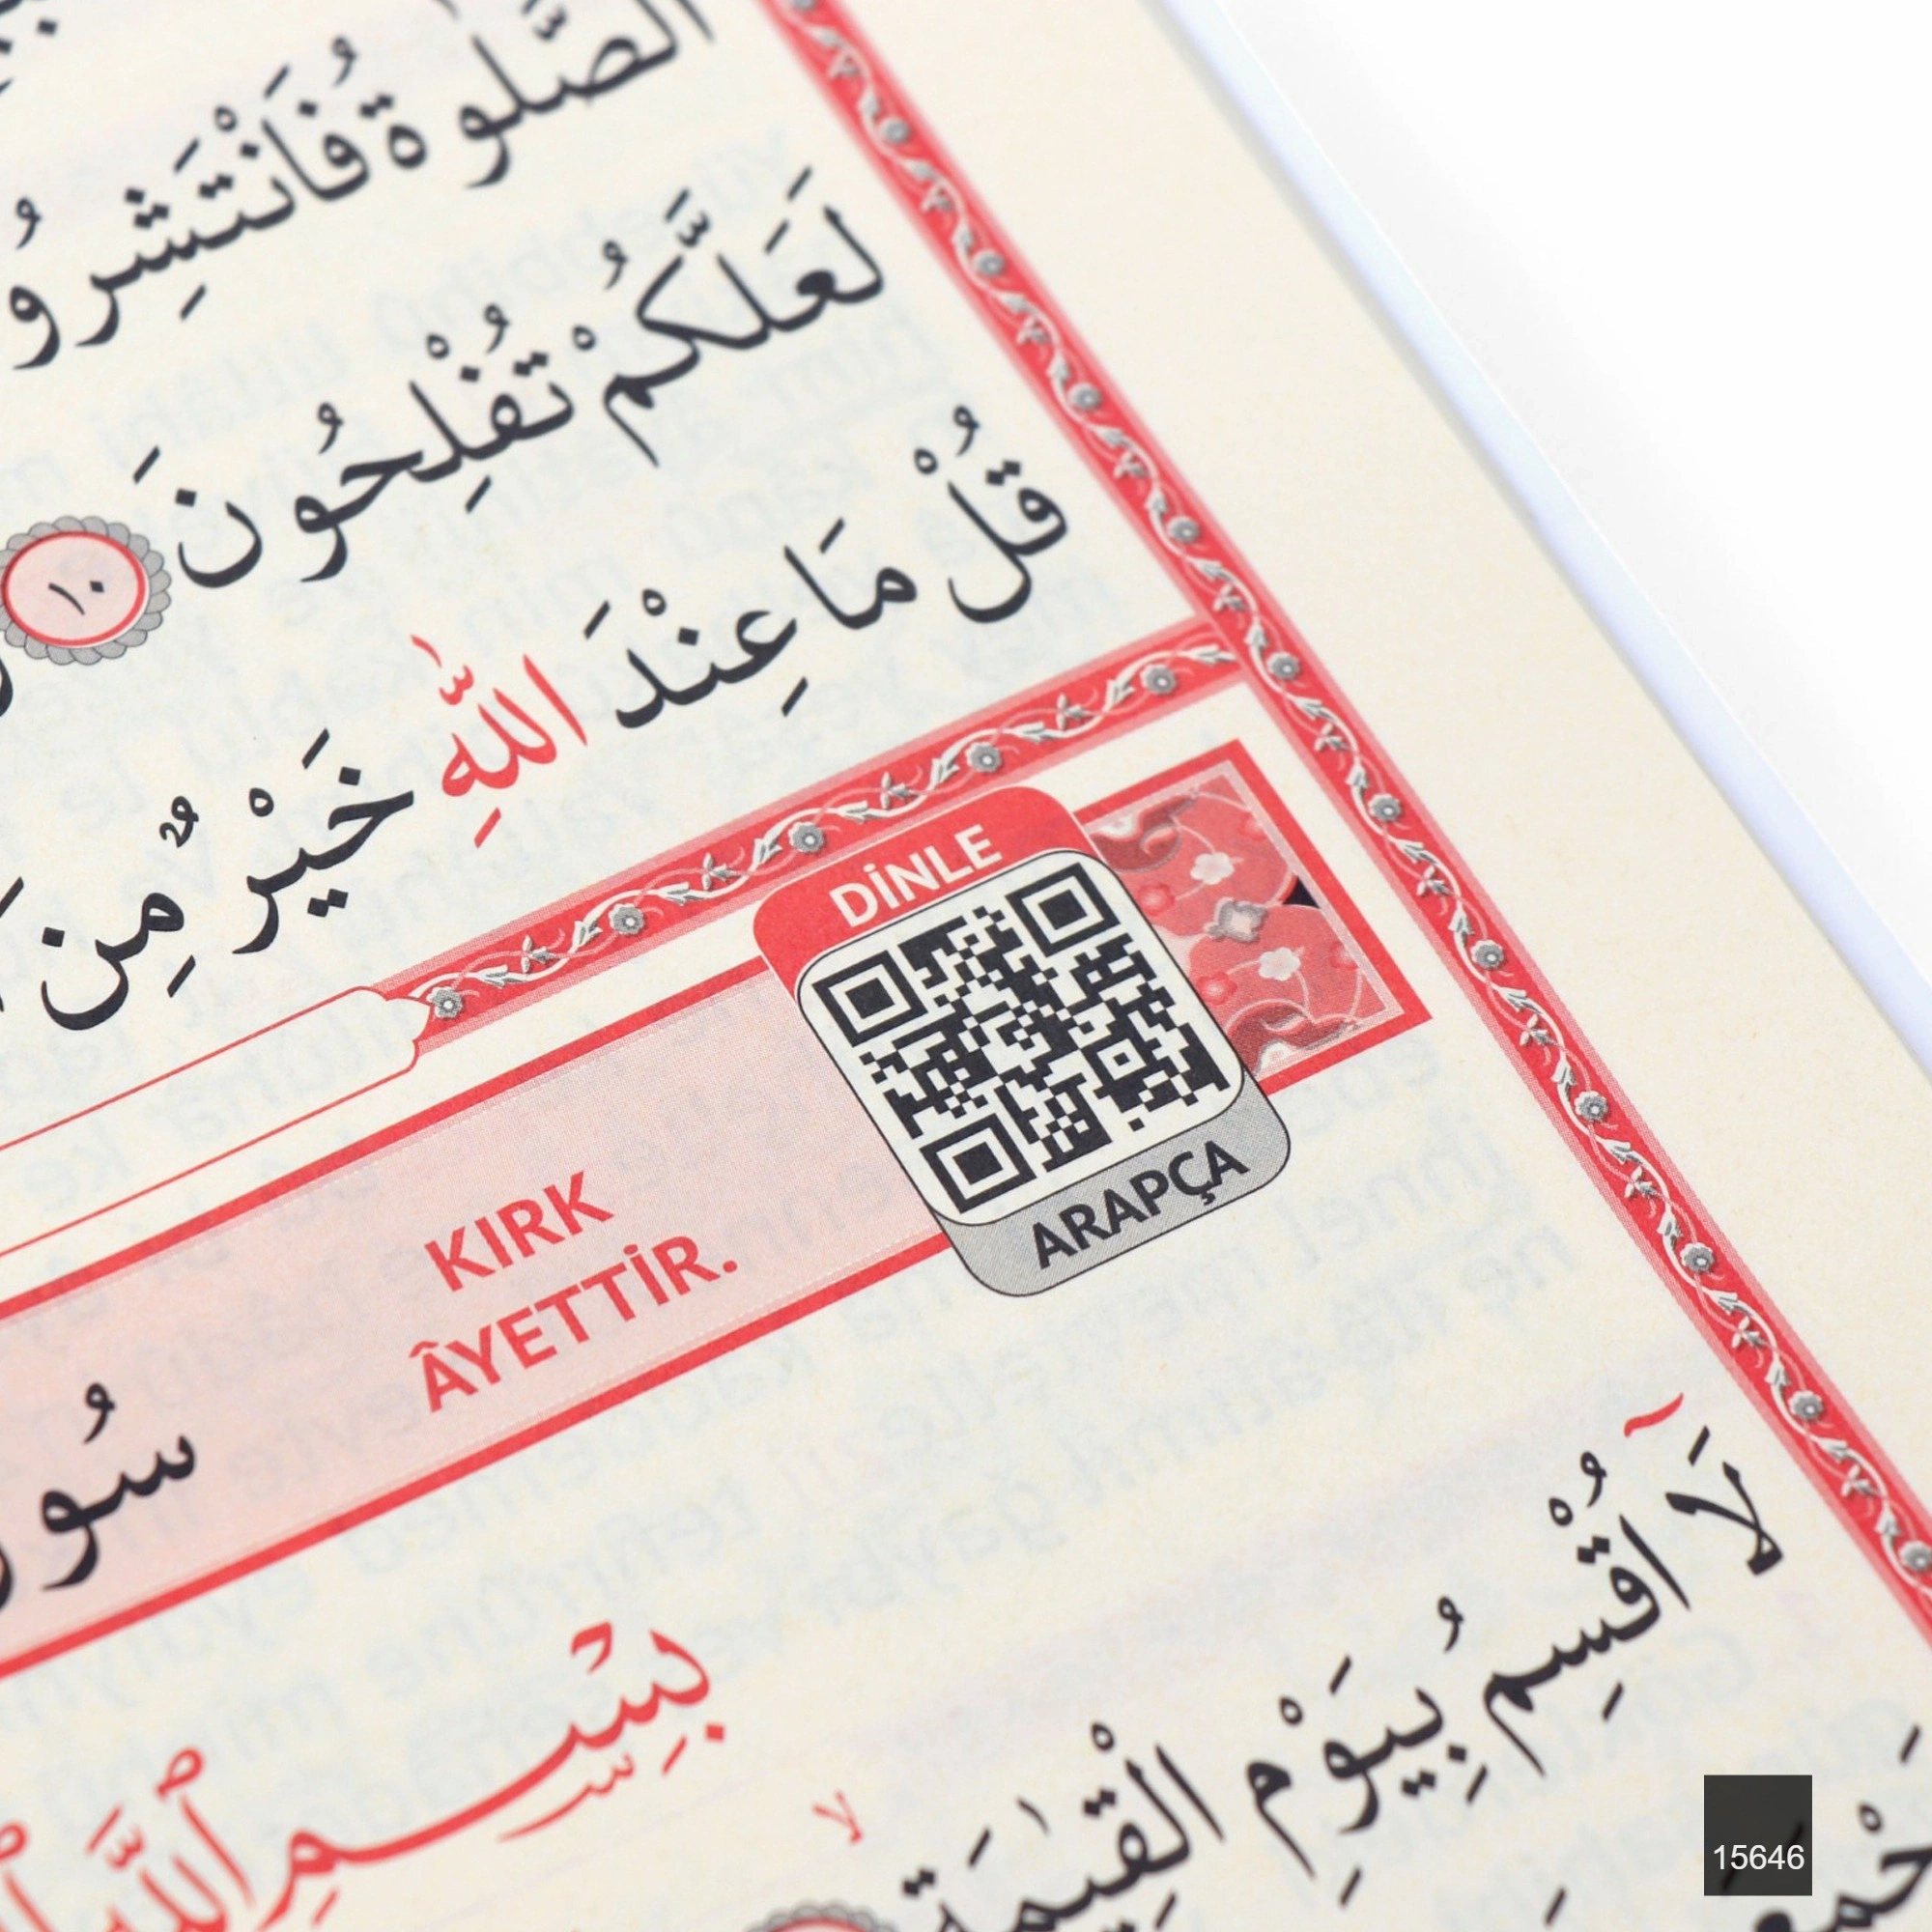 الصَّلٰوةُ فَانْتَشِرُو
لَعَلَّكُمْ تُفْلِحُونَ ١٠
قُلْ مَا عِنْدَ اللّٰهِ خَيْرٌ مِنَ
DİNLE
ARAPÇA
KIRK
ÂYETTİR.
بِسْمِ اللّٰهِ
لَٓا اُقْسِمُ بِيَوْمِ الْقِيٰمَةِ
15646